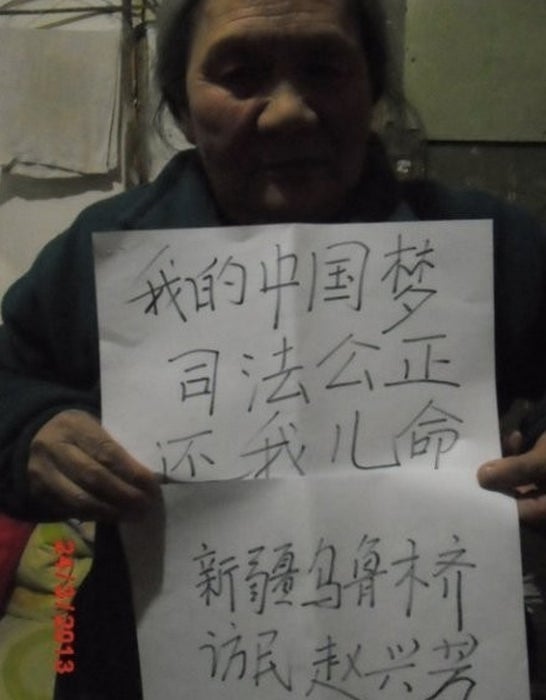 我的中国梦
司法公正
还我儿命
新疆乌鲁木齐
访民赵兴芳
24/3/2013